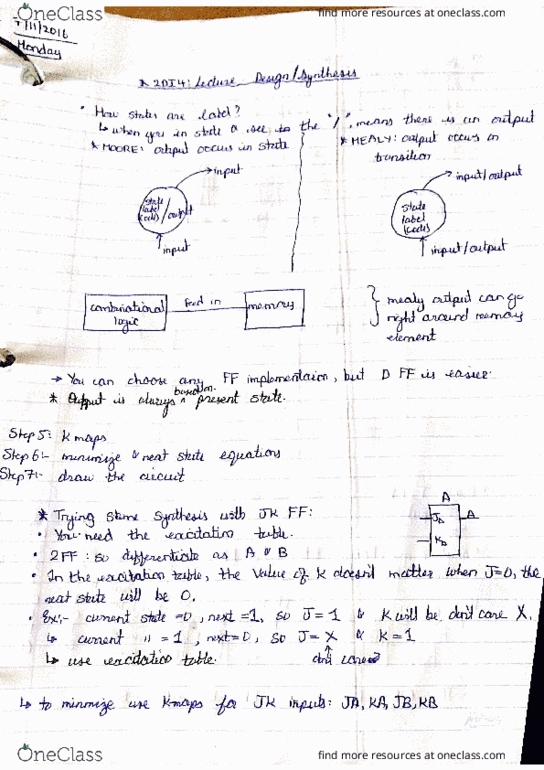 OneClass
find more resources at oneclass.com
7/11/2016
Monday
* 2DI4: Lecture Design/Synthesis
• How states are label?
↳ when you in state & see to the "/", means there is an output
* MOORE: output occurs in state
* MEALY: output occurs on
transition
input
state label (codes) / output
input
input/output
state label (codes)
input/output
combinational logic
feed in
memory
mealy output can go
right around memory
element
→ You can choose any FF implementaion, but D FF is easier.
* Output is always based on present state.
Step 5: K maps
Step 6:- minimize & next state equations
Step 7:- draw the circuit
* Trying same synthesis with JK FF:
A
JA
A
KA
• You need the excitation table.
• 2FF: so differentiate as A & B
• In the excitation table, the value of K doesn't matter when J=0, the
next state will be 0.
• Ex:- current state =0, next =1, so J=1 & K will be don't care X.
↳ current " =1, next=0, so J=X & K=1
↳ use excitation table.
don't cares
↳ to minimize use K-maps for JK inputs: JA, KA, JB, KB
OneClass
find more resources at oneclass.com